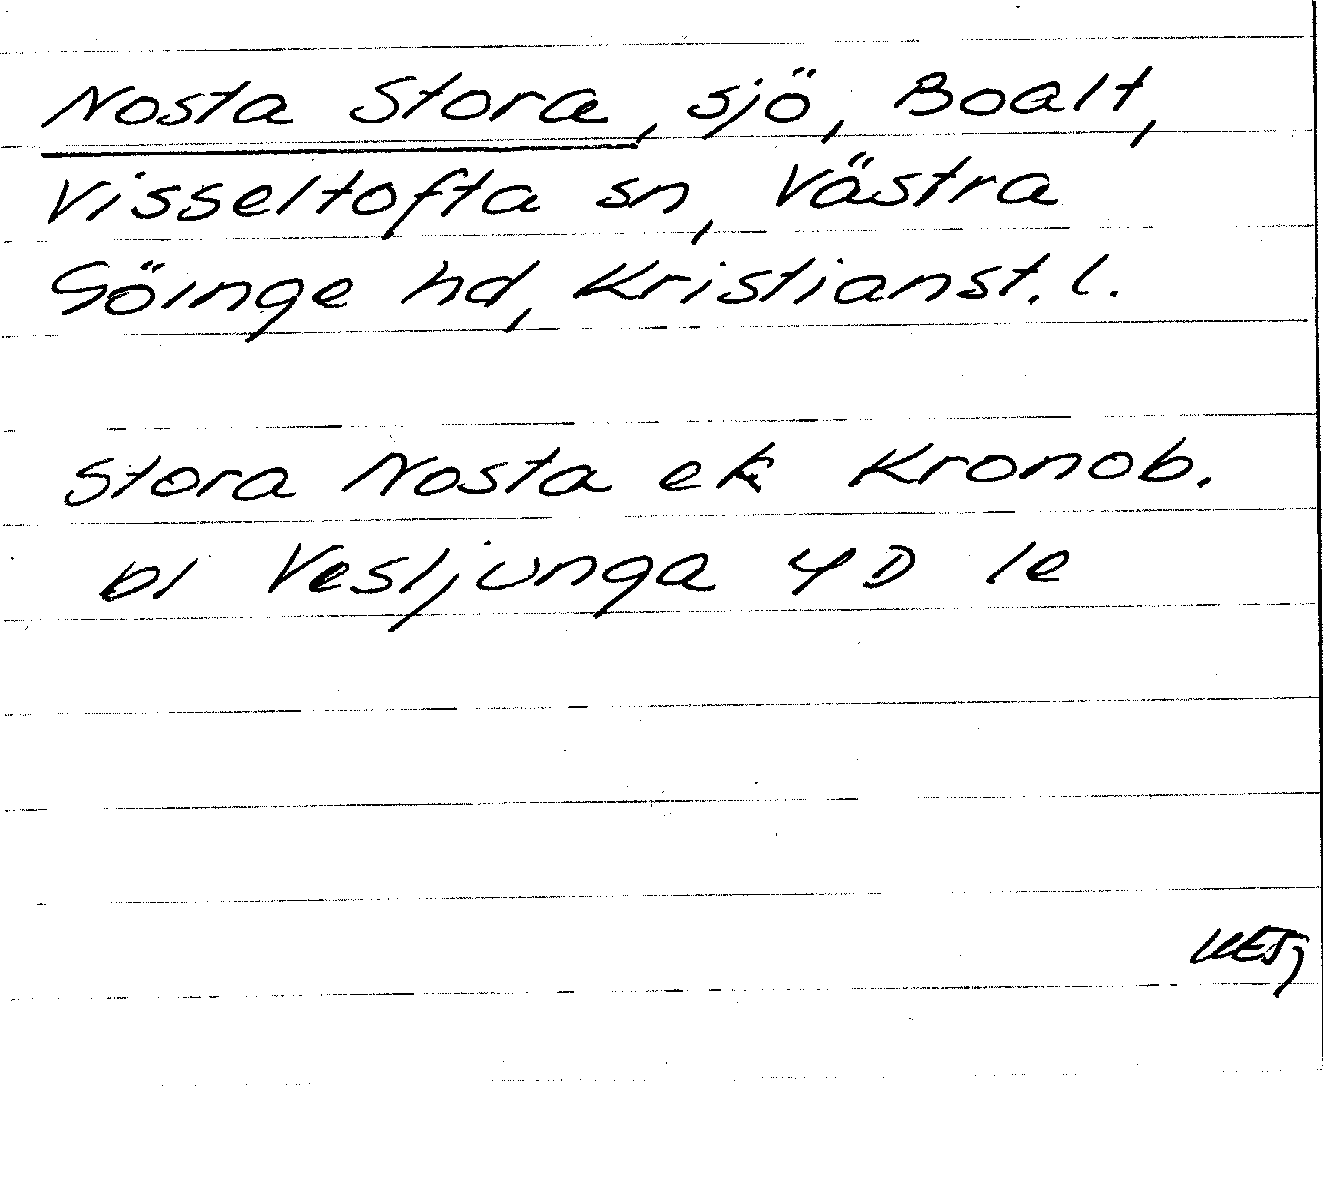 Nosta Stora, sjö, Boalt,
Visseltofta sn, Västra
Göinge hd, Kristianst. l.
Stora Nosta ek Kronob.
bl Vesljunga 4D le